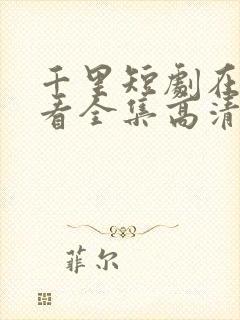 千里短劇在
看全集高清
菲尔